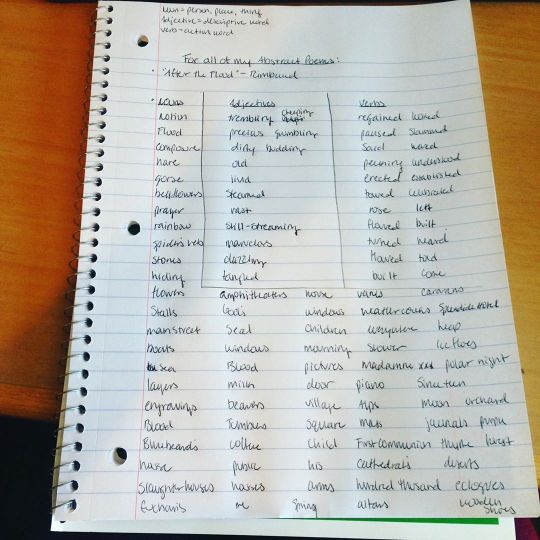 Noun = person, place, thing
Adjective = descriptive word
verb = action word
For all of my Abstract Poems:
"After the Flood" - Rimbaud
Nouns Adjectives verbs
notion trembling cheeping regained loved
Flood precious gumbling paused slammed
composure dirty budding said waved
hare old peening understood
gorse livid erected established
bellflowers steamed towed celebrated
prayer vast rose left
rainbow still-streaming flowed built
spider's web marvelous turned heard
stones dazzling flowed had
hiding tangled built come
flowers amphitheaters house vanes caravans
Stalls God's windows weathercocks Splendide Hotel
mainstreet Seal children everywhere heap
boats windows mourning shower ice floes
sea Blood pictures madamme xxx polar night
layers milk door piano Sinceteen
engravings beavers village Alps moon orchard
Blood Tumblers Square mass jackals purple
Bluebeard's coffee child First Communion thyme forest
house public his cathedral's deserts
Slaughterhouses houses arms hundred thousand eclogues
Eucharis me Spring altars wooden
shoes